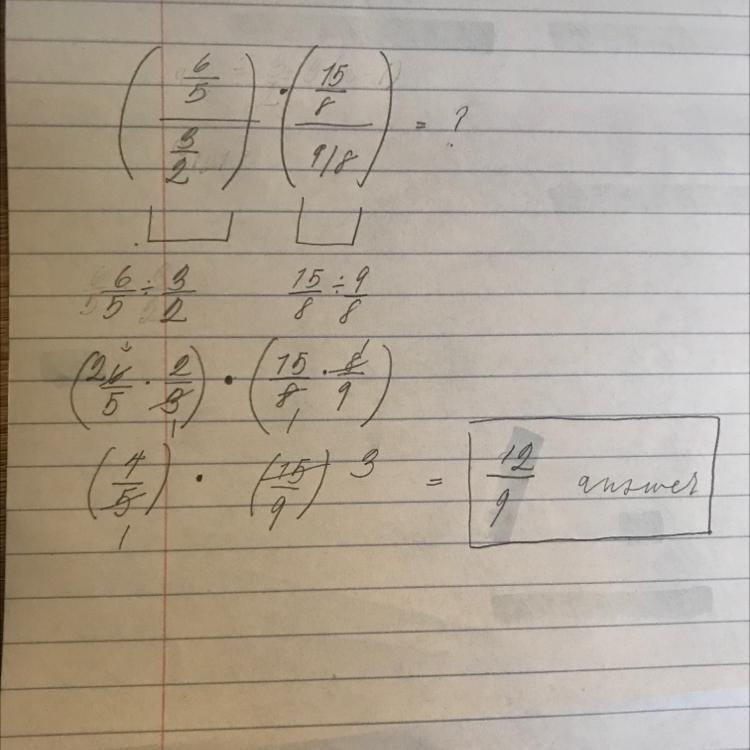 (6/5 / 3/2) · (15/8 / 9/8) = ?
6/5 ÷ 3/2 15/8 ÷ 9/8
(2 6/5 · 2/3 1) · (15/8 1 · 8 1/9)
(4/5 1) · (15/9) 3 = 12/9 answer